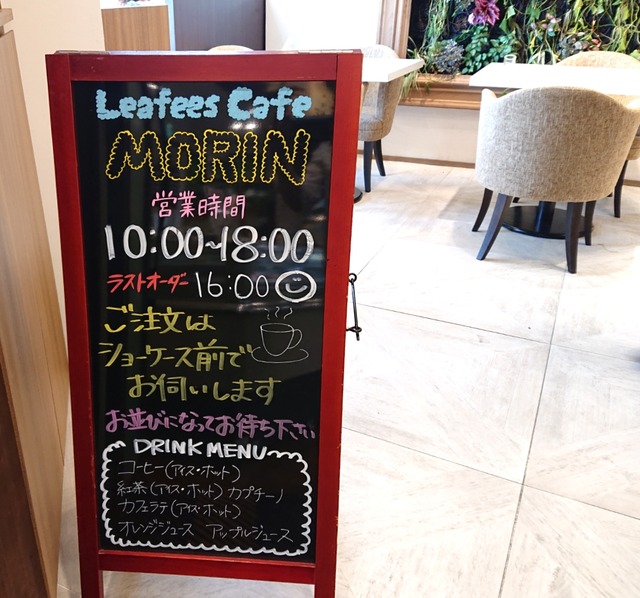 Leafees Cafe
MORIN
営業時間
10:00~18:00
ラストオーダー 16:00
ご注文は
ショーケース前で
お伺いします
お並びになってお待ち下さい
DRINK MENU
コーヒー(アイス・ホット)
紅茶(アイス・ホット) カプチーノ
カフェラテ(アイス・ホット)
オレンジジュース アップルジュース